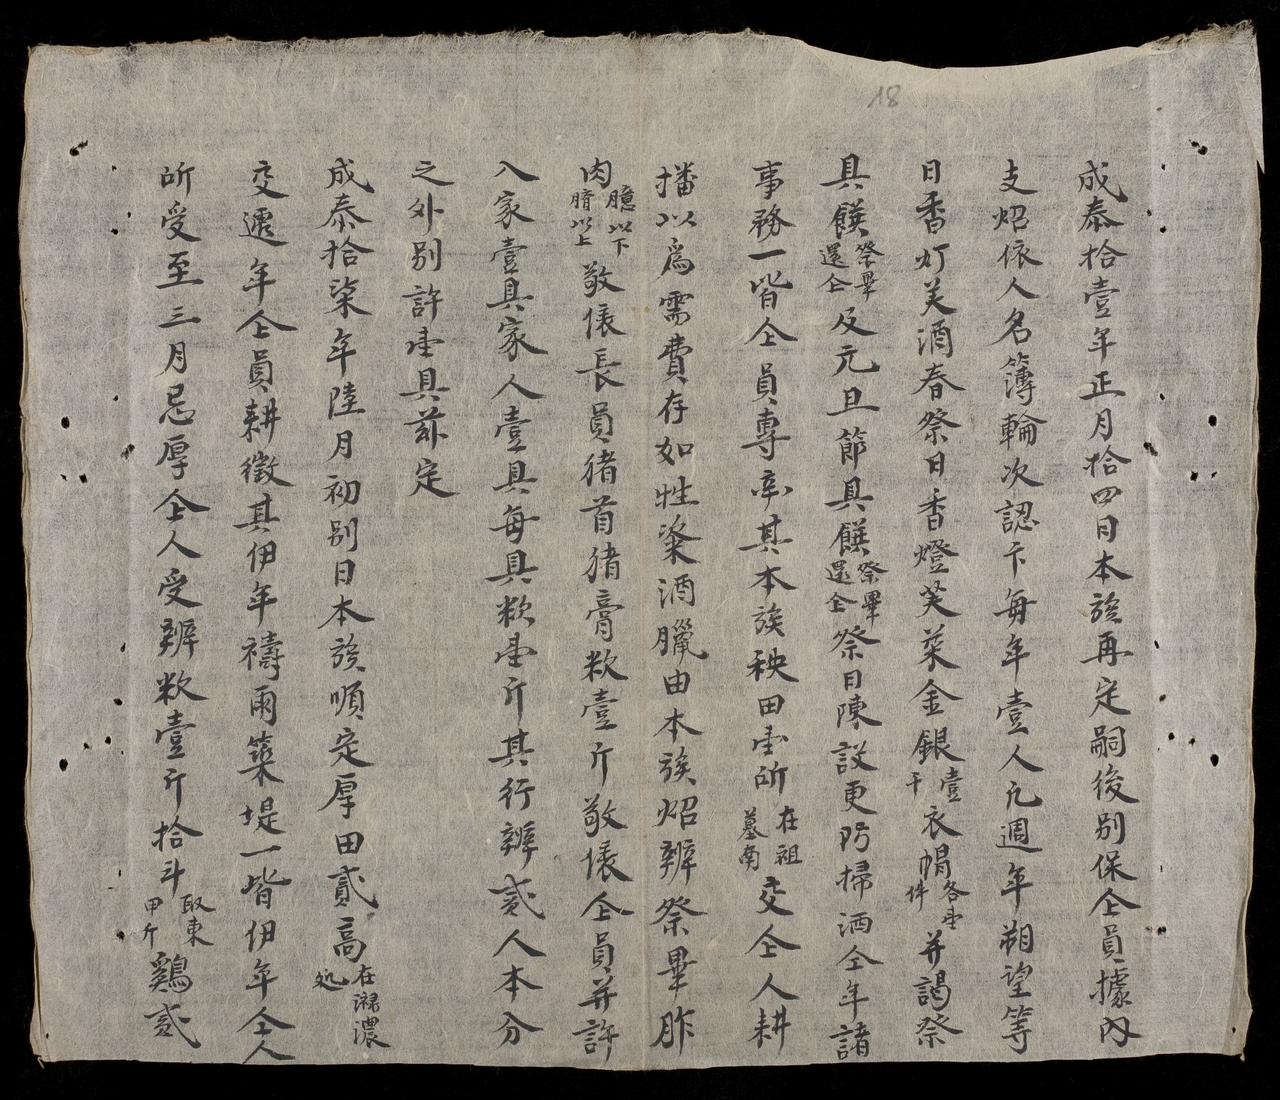 18
成泰拾壹年正月拾四日本族再定嗣後別保仝員據內
支炤依人名簿輪次認卞每年壹人凢週年朔望等
日香灯芙酒春祭日香燈芙菜金銀壹千衣帽各壱件并謁祭
具饌祭畢還仝及元旦節具饌祭畢還仝祭日陳設更防掃洒仝年諸
事務一皆仝員專率其本族秧田壱所在祖墓南交仝人耕
播以爲需費存如牲粢酒臘由本族炤辨祭畢胙
肉臆以下腈以上敬俵長員猪首猪膏欵壹斤敬俵仝員并許
入家壹具家人壹具每具欵壱斤其行辨贰人本分
之外別許壱具茲定
成泰拾柒年陸月初別日本族順定厚田貳高在濃処
交遞年仝員耕徵其伊年禱雨築堤一皆伊年仝人
所受至三月忌厚仝人受辨欵壹斤拾斗取東甲斤鷄贰